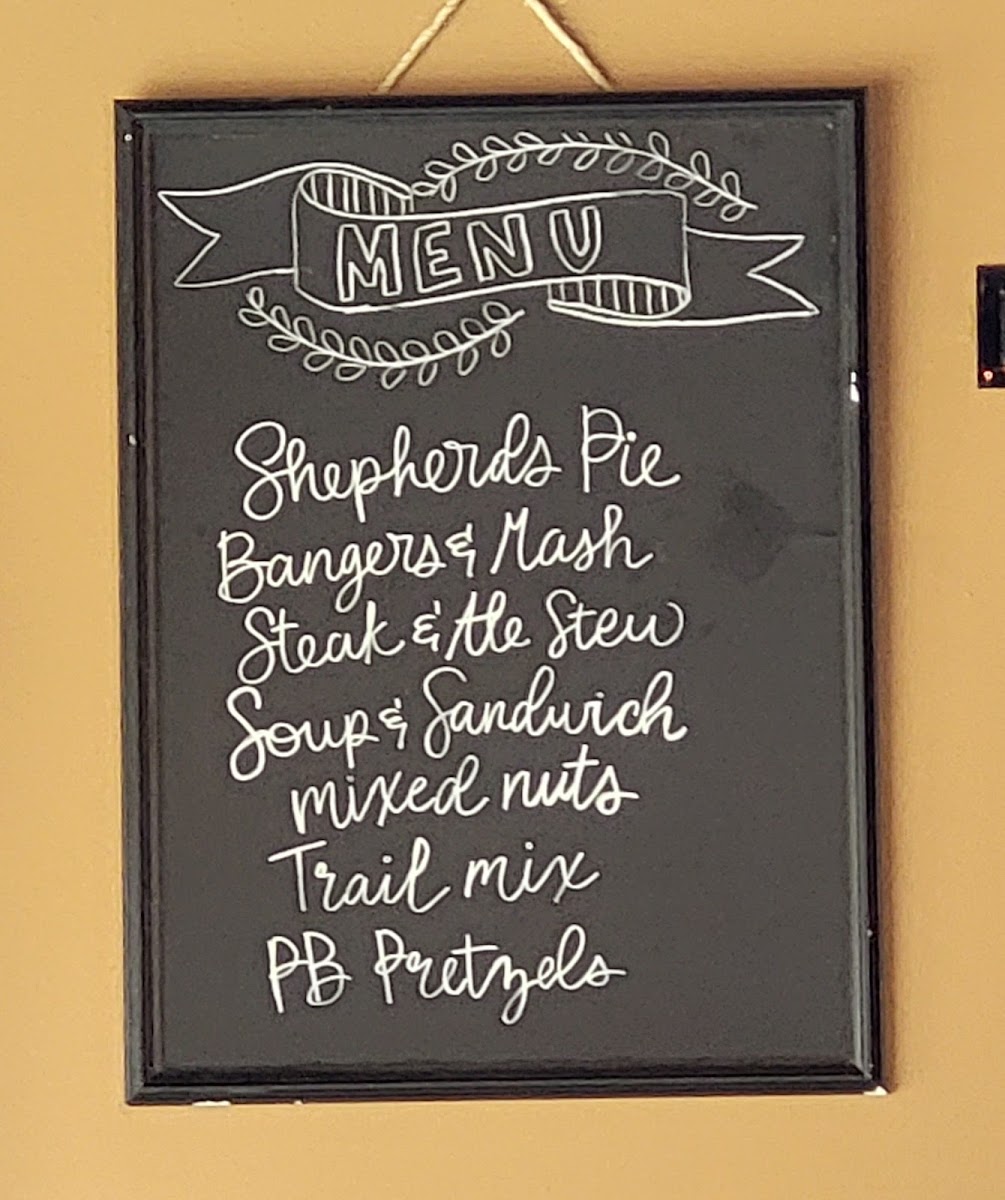 MENU
Shepherds Pie
Bangers & Mash
Steak & Ale Stew
Soup & Sandwich
mixed nuts
Trail mix
PB Pretzels